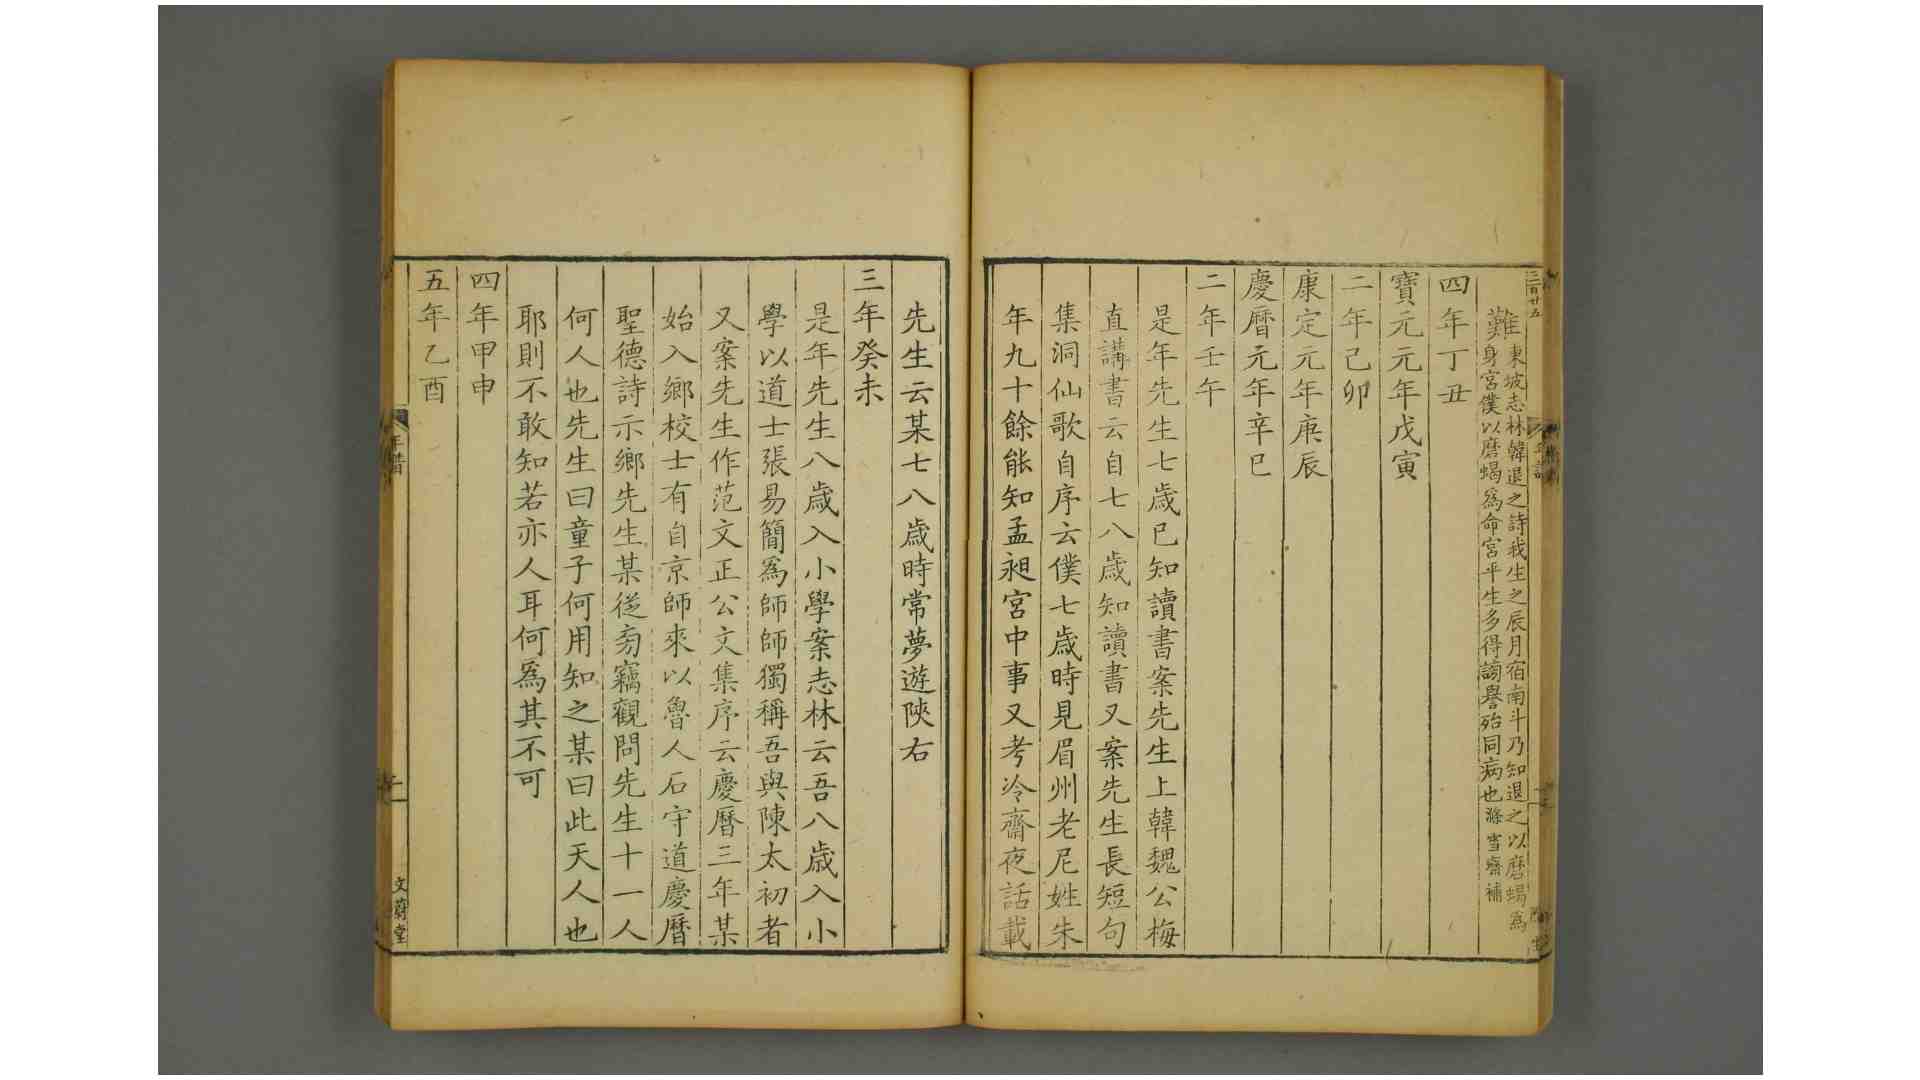 難
東坡志林韓退之詩我生之辰月宿南斗乃知退之以磨蝎爲
身宮僕以磨蝎爲命宮平生多得謗譽殆同病也滁雪齋補
四年丁丑
寶元元年戊寅
二年己卯
康定元年庚辰
慶曆元年辛巳
二年壬午
是年先生七歲已知讀書案先生上韓魏公梅
直講書云自七八歲知讀書又案先生長短句
集洞仙歌自序云僕七歲時見眉州老尼姓朱
年九十餘能知孟昶宮中事又考冷齋夜話載
先生云某七八歲時常夢遊陝右
三年癸未
是年先生八歲入小學案志林云吾八歲入小
學以道士張易簡爲師師獨稱吾與陳太初者
又案先生作范文正公文集序云慶曆三年某
始入鄉校士有自京師來以魯人石守道慶曆
聖德詩示鄉先生某從旁竊觀問先生十一人
何人也先生曰童子何用知之某曰此天人也
耶則不敢知若亦人耳何爲其不可
四年甲申
五年乙酉
年譜
二
文蔚堂